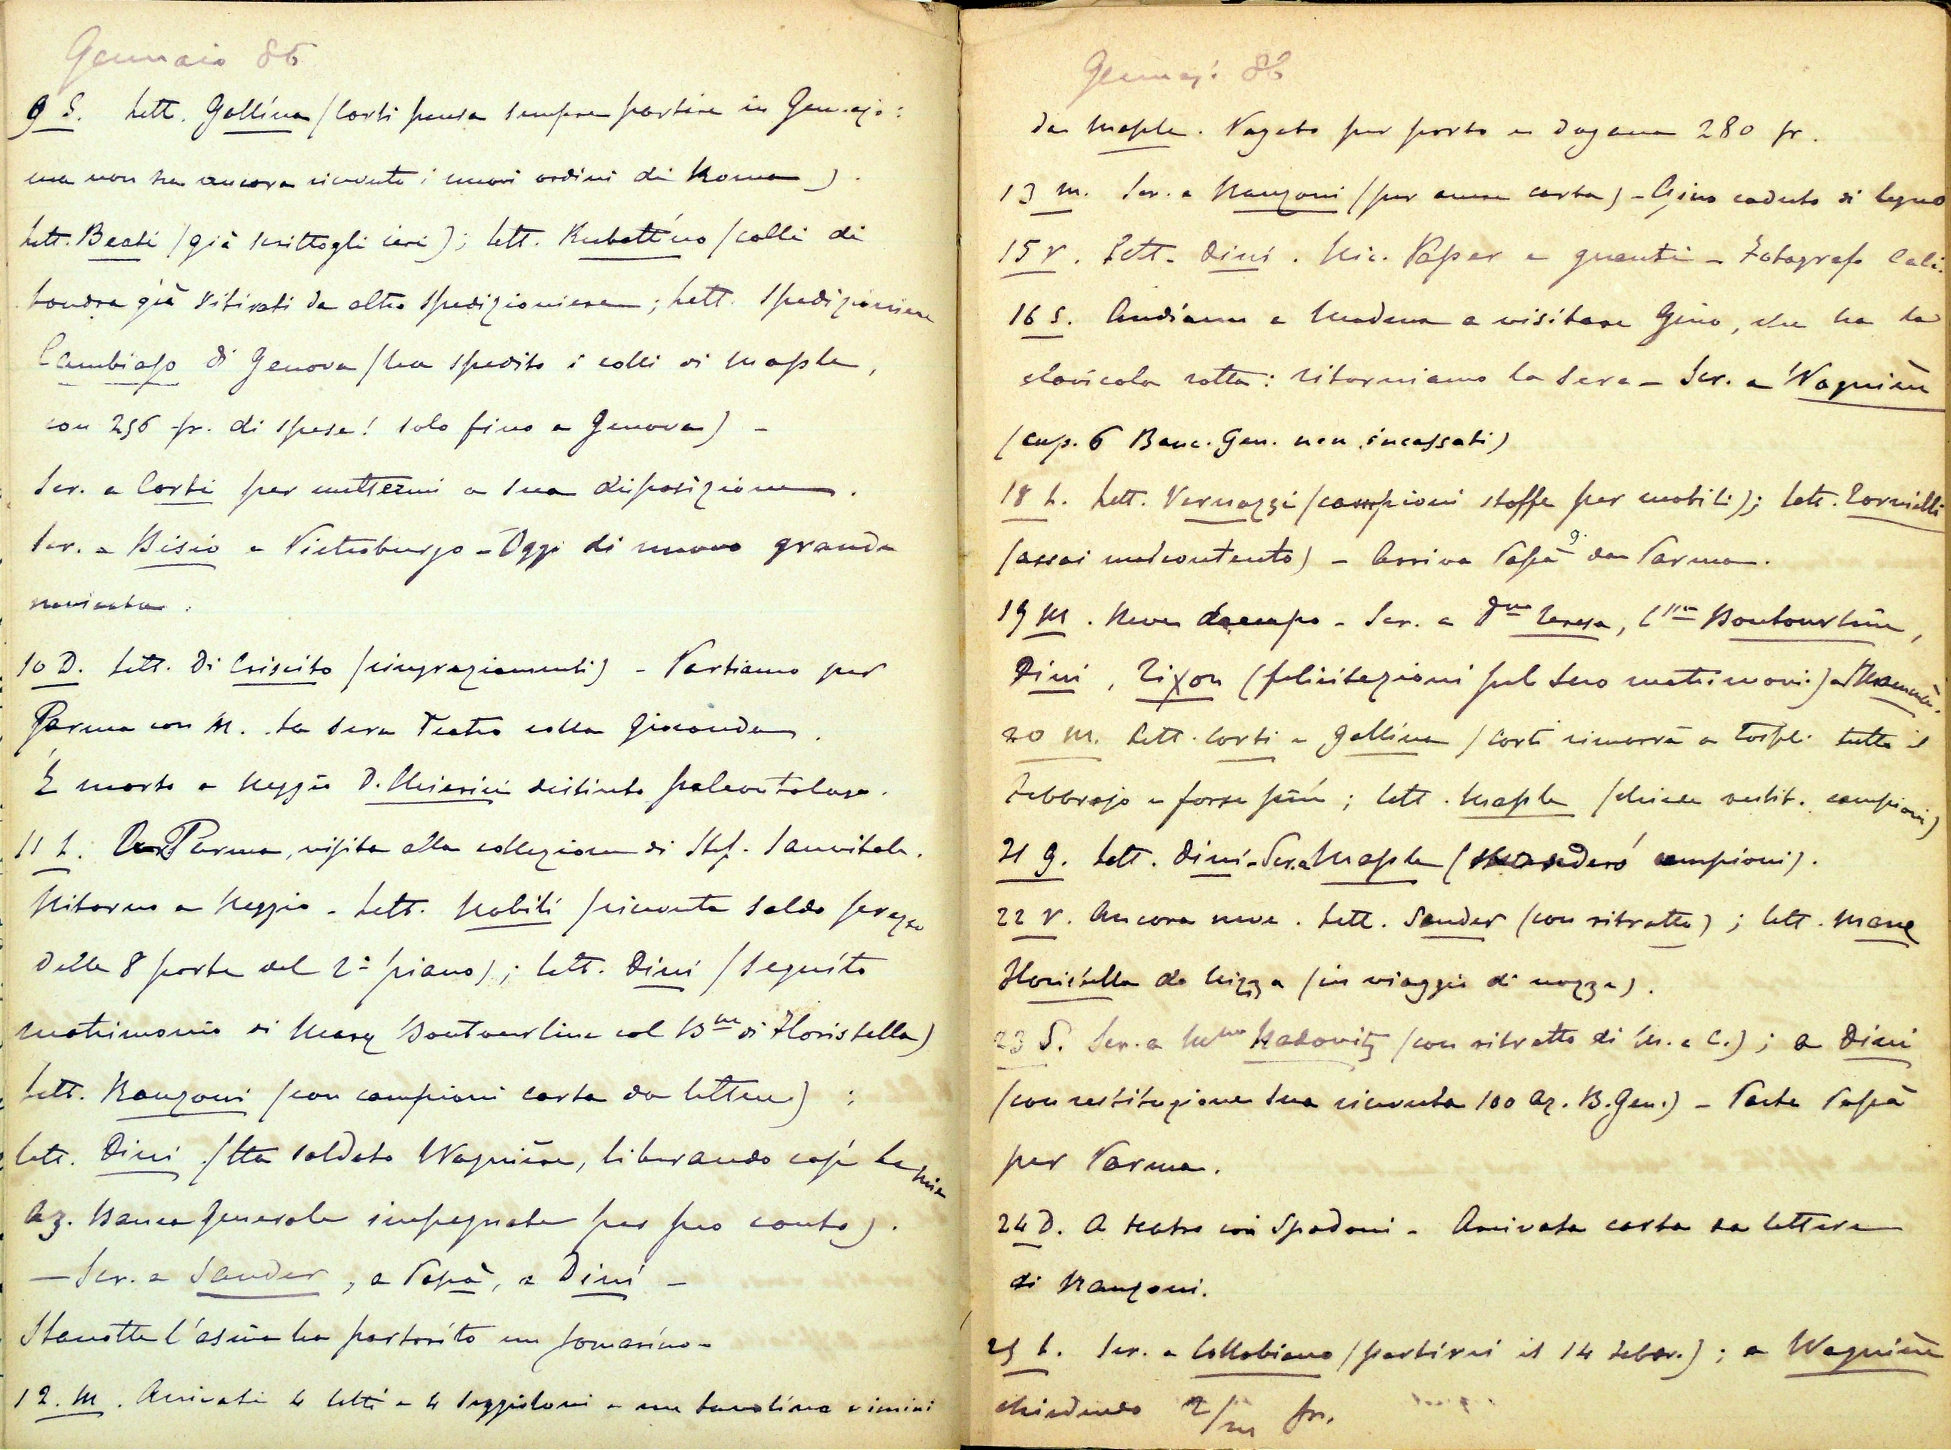 Gennaio 86
9 S. Lett. Gallina (Corti pensa sempre partire in Gennajo:
ma non ha ancora ricevuto i nuovi ordini di Roma).
Lett. Beati (già scrittogli ieri); lett. Rubattino (colli di
Londra già ritirati da altro spedizioniere; lett. spedizioniere
Cambiaso di Genova (ha spedito i colli di Maple,
con 256 fr. di spese! solo fino a Genova) -
Scr. a Corti per mettermi a sua disposizione.
Scr. a Bisio a Pietroburgo - Oggi di nuovo grande
nevicata.
10 D. Lett. Di Crispito (ringraziamenti) - Partiamo per
Parma con M. La sera Teatro colla Gioconda.
È morto a Reggio D. Chierici distinto paleontologo.
11 L. Parma, visita alla collezione di Stef. Sanvitale.
Ritorno a Reggio - Lett. Nobili (ricevuta saldo prezzo
delle 8 porte del 2º piano); lett. Dini (seguito
matrimonio di Mary Boutourline col Bne di Floristella)
Lett. Manzoni (con campioni carta da lettere);
lett. Dini (Ha saldato Wagnière, liberando così le mie
Az. Banca Generale impegnate per suo conto).
- Scr. a Sander, a Papà, a Dini -
Stanotte l'asina ha partorito un somarino -
12. M. Arrivati 4 letti e 4 seggioloni e un tavolino
Gennajo 86
da Maple. Pagato per porto e dogana 280 fr.
13 M. Scr. a Manzoni (per avere carta) - Gino caduto di legno
15 V. Lett. Dini. Ric. Paper e guanti - Fotografo Cali.
16 S. Andiamo a Modena a visitare Gino, che ha la
clavicola rotta: ritorniamo la sera - Scr. a Wagnière
(cup. 6 Banc. Gen. non incassati)
18 L. Lett. Vernazzi (campioni stoffe per mobili); lett. Tornielli
(assai malcontento) - Arriva Papà da Parma.
19 M. Neve - Scr. a Dna Teresa, Cssa Boutourline,
Dini, Tixon (felicitazioni pel suo matrimoni.)
20 M. Lett. Corti e Gallina (Corti rimarrà a Costpli. tutto il
Febbrajo e forse più; lett. Maple (chiede restit. campioni)
21 G. Lett. Dini - Scr. a Maple (manderò campioni).
22 V. Ancora neve. Lett. Sander (con ritratto); lett. Mary
Floristella da Nizza (in viaggio di nozze).
23 S. Scr. a Mme Radowitz (con ritratto di M. e C.); a Dini
(con restituzione sua ricevuta 100 Az. B. Gen.) - Parte Papà
per Parma.
24 D. A teatro coi Spadoni - Arrivata carta da lettere
di Manzoni.
25 L. Scr. a Collobiano (partirei il 14 Febbr.); a Wagnière
chiedendo 2/m fr.